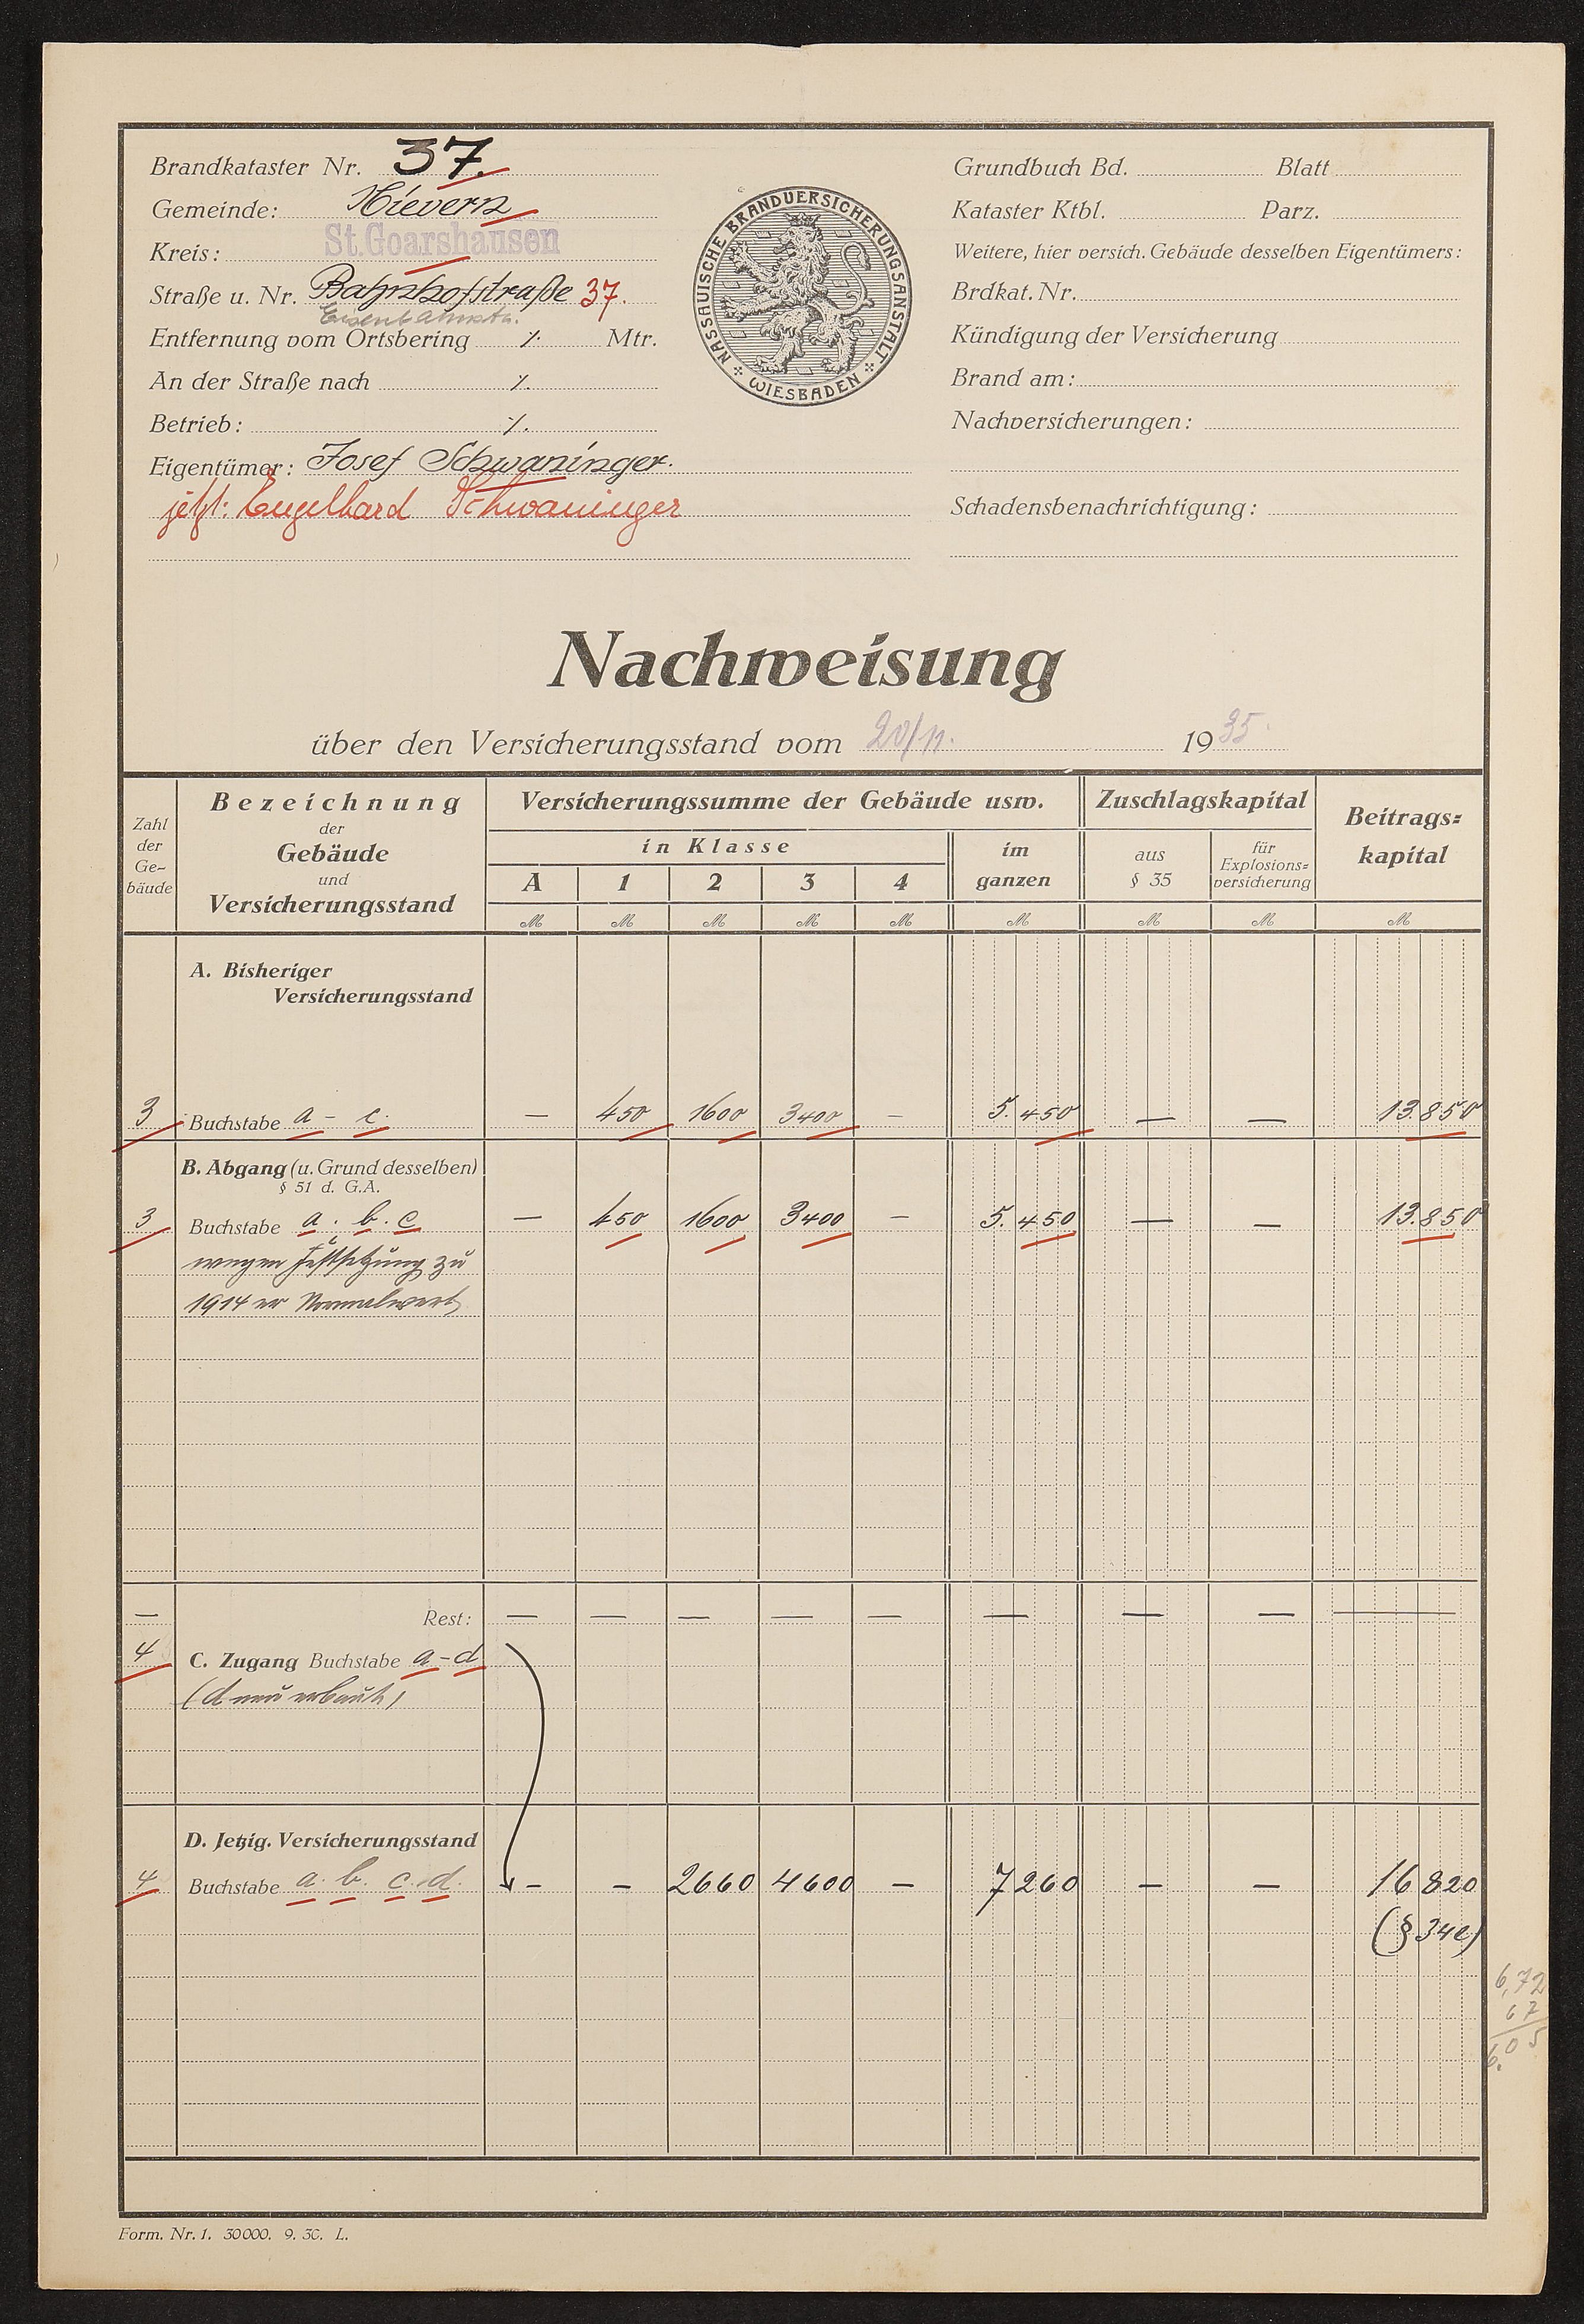 Brandkataster Nr. 37.
Gemeinde: Nievern
Kreis: St. Goarshausen
Straße u. Nr. Bahnhofstraße 37.
Eisenbahnstr.
Entfernung vom Ortsbering ./. Mtr.
An der Straße nach ./.
Betrieb: ./.
Eigentümer: Josef Schwaninger.
jetzt: Engelhard Schwaninger
NASSAUISCHE BRANDVERSICHERUNGSANSTALT
WIESBADEN
Grundbuch Bd. Blatt
Kataster Ktbl. Parz.
Weitere, hier versich. Gebäude desselben Eigentümers:
Brdkat. Nr.
Kündigung der Versicherung
Brand am:
Nachversicherungen:
Schadensbenachrichtigung:
Nachweisung
über den Versicherungsstand vom 20/11. 1935.
Zahl der Ge-bäude
Bezeichnung der Gebäude und Versicherungsstand
Versicherungssumme der Gebäude usw.
in Klasse
A 1 2 3 4
im ganzen
Zuschlagskapital
aus § 35
für Explosions-versicherung
Beitrags-kapital
M M M M M M M M M
A. Bisheriger
Versicherungsstand
3 Buchstabe a - c. — 450 1600 3400 — 5.450 — — 13.850
B. Abgang (u. Grund desselben)
§ 51 d. G.A.
3 Buchstabe a. b. c — 450 1600 3400 — 5.450 — — 13.850
wegen Festsetzung zu
1914 er Normalwert
— Rest: — — — — — — — — —
4 C. Zugang Buchstabe a - d
(d neu erbaut)
D. Jetzig. Versicherungsstand
4 Buchstabe a. b. c. d. — — 2660 4600 — 7260 — — 16820
(§ 34e)
6,72
67
6.05
Form. Nr. 1. 30000. 9. 30. L.